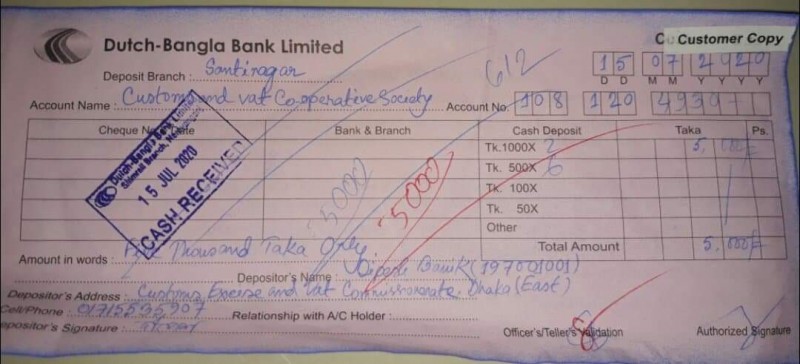 Customer Copy
Dutch-Bangla Bank Limited
612
15 07 2020
D D M M Y Y Y Y
Deposit Branch : Santinagar
Account Name : Customs and vat Co-operative Society Account No. 108 120 4939
Cheque No. Date Bank & Branch Cash Deposit Taka Ps.
Tk.1000X 2 5,000
Tk. 500X 6
Tk. 100X
Tk. 50X
Other
Total Amount 5,000/=
Dutch-Bangla Bank Limited
15 JUL 2020
CASH RECEIVED
5000
5000
Amount in words : Five Thousand Taka Only
Depositor's Name : Dipali Banik (197001001)
Depositor's Address : Customs Excise and Vat Commissionarate, Dhaka (East)
Cell/Phone : 01715535907 Relationship with A/C Holder :
Depositor's Signature : Officer's/Teller's Validation Authorized Signature